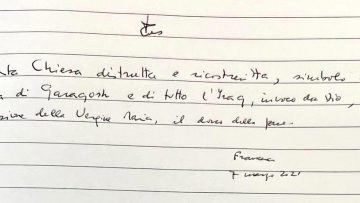 Chiesa distrutta e ricostruita, simbolo
di Qaraqosh e di tutto l'Iraq, invoco da Dio,
della Vergine Maria, il dono della pace.
Franciscus
7 marzo 2021